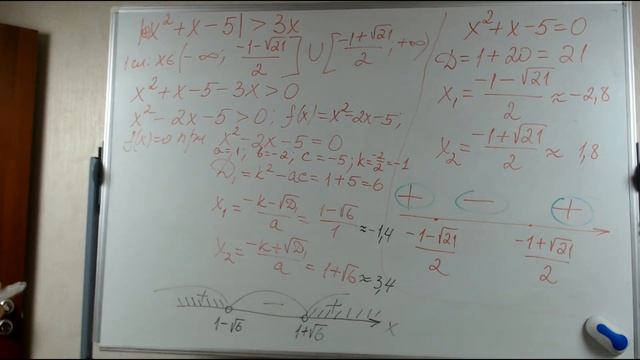 |x²+x-5|>3x
1 сл: x∈(-∞; (-1-√21)/2] ∪ [(-1+√21)/2; +∞)
x²+x-5-3x>0
x²-2x-5>0; f(x)=x²-2x-5;
f(x)=0 при x²-2x-5=0
a=1; b=-2; c=-5; k=-2/2=-1
D₁=k²-ac=1+5=6
x₁=(-k-√D₁)/a=(1-√6)/1≈-1,4
x₂=(-k+√D₁)/a=1+√6≈3,4
+ - +
1-√6 1+√6 x
x²+x-5=0
D=1+20=21
x₁=(-1-√21)/2≈-2,8
x₂=(-1+√21)/2≈1,8
+ - +
(-1-√21)/2 (-1+√21)/2